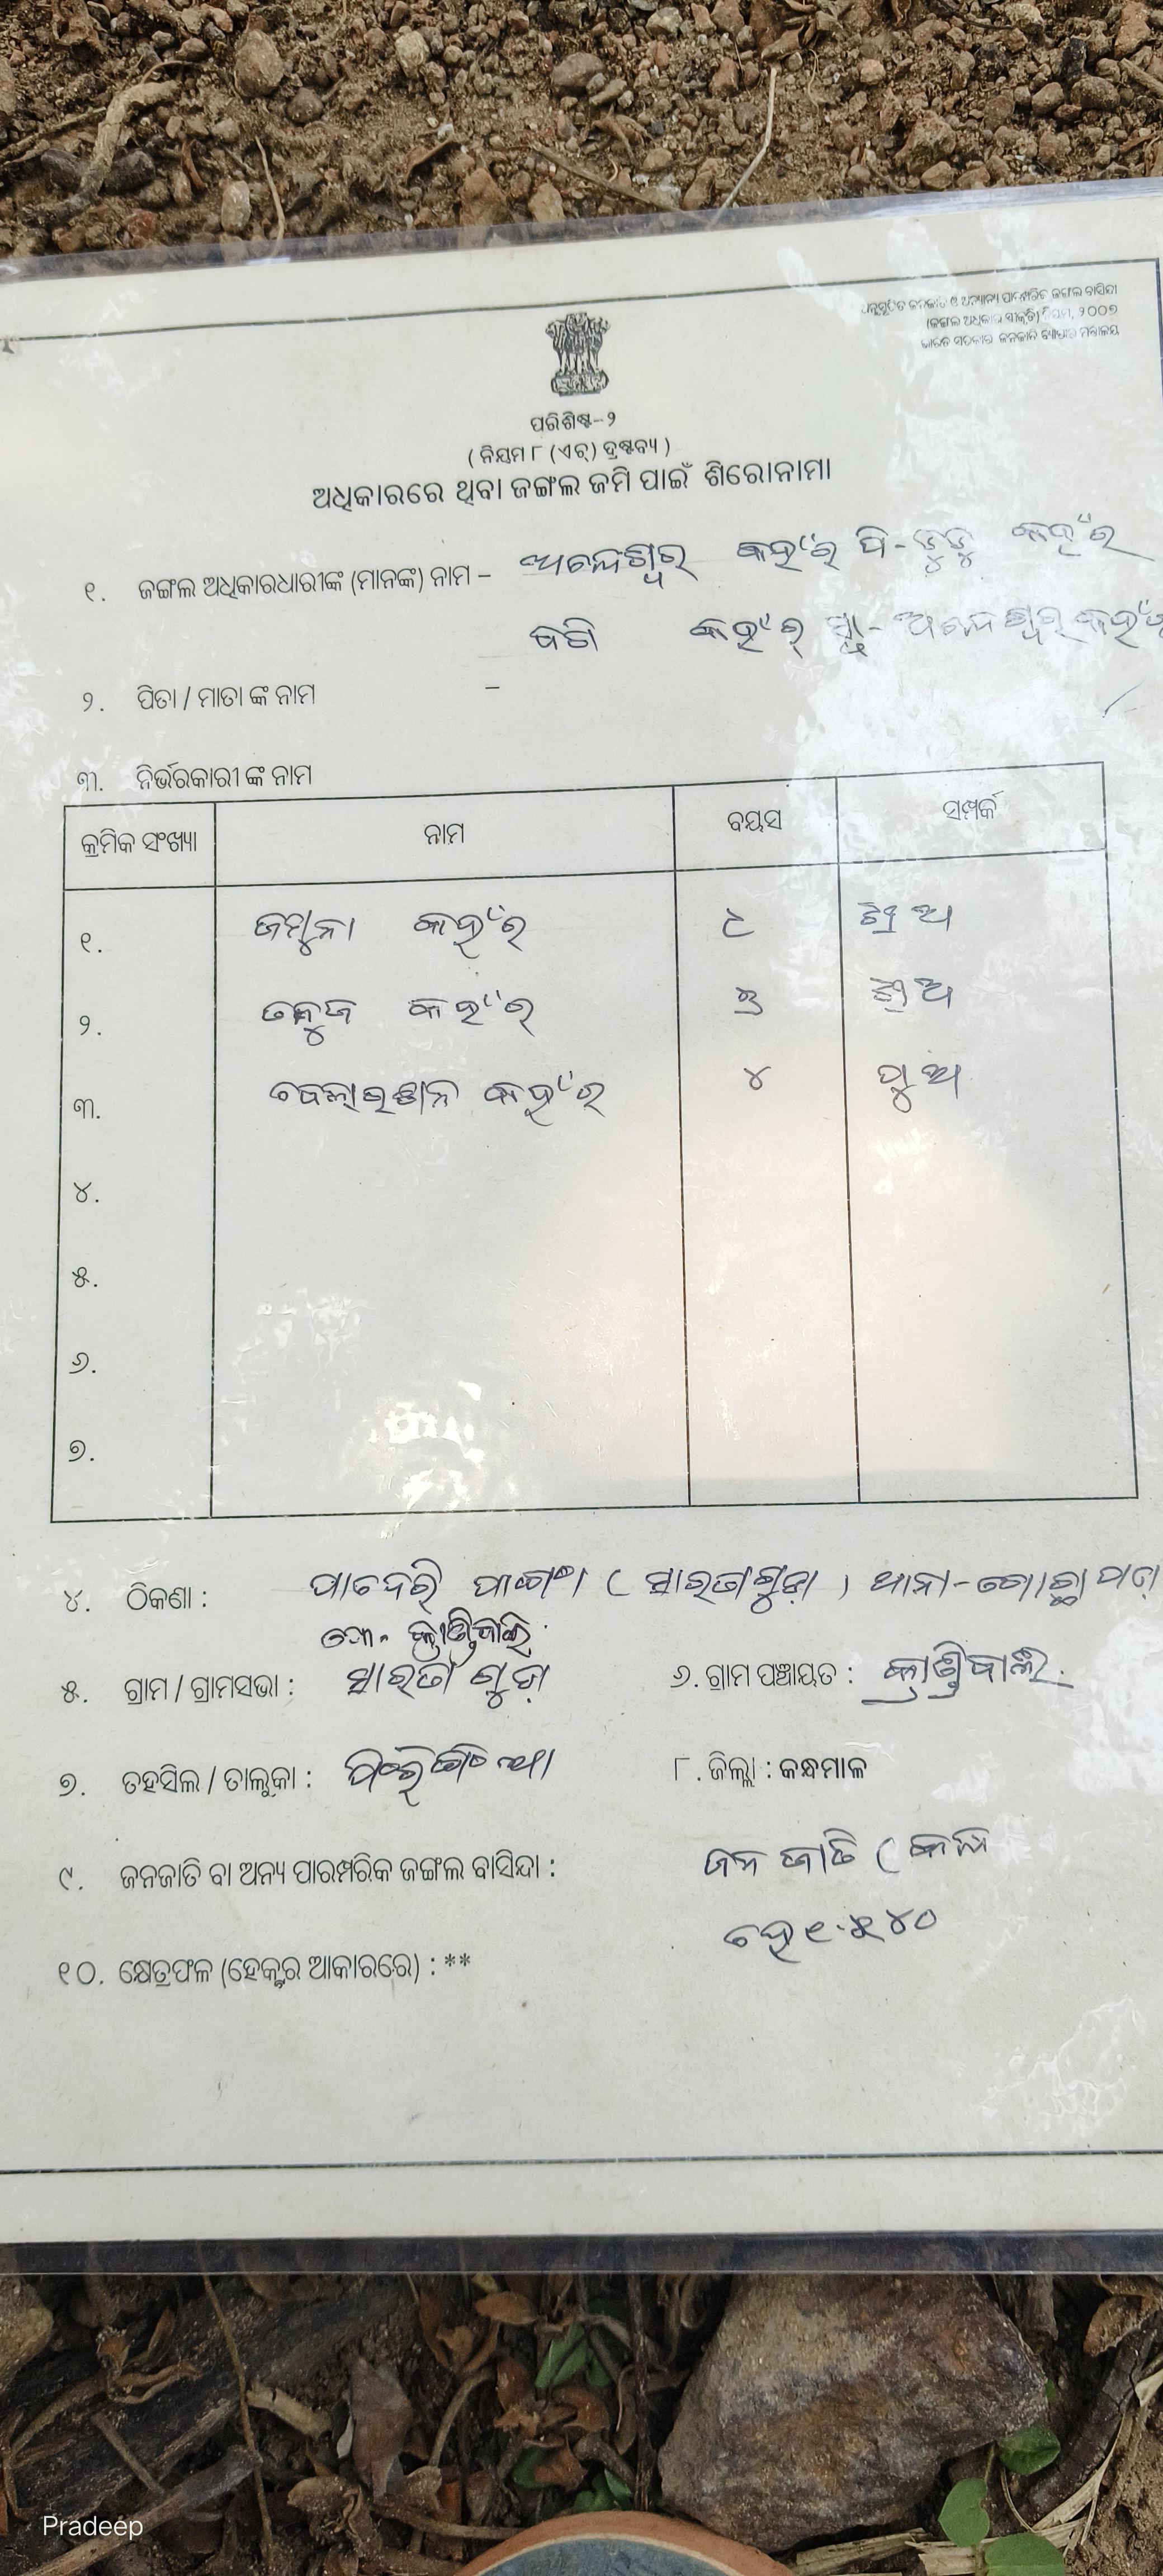 ଅନୁସୂଚିତ ଜନଜାତି ଓ ଅନ୍ୟାନ୍ୟ ପାରମ୍ପରିକ ଜଙ୍ଗଲ ବାସିନ୍ଦା
(ଜଙ୍ଗଲ ଅଧିକାର ସ୍ୱୀକୃତି) ନିୟମ, ୨୦୦୭
ଭାରତ ସରକାର ଜନଜାତି ବ୍ୟାପାର ମନ୍ତ୍ରାଳୟ
ପରିଶିଷ୍ଟ-୨
( ନିୟମ ୮ (ଏଚ୍) ଦ୍ରଷ୍ଟବ୍ୟ )
ଅଧିକାରରେ ଥିବା ଜଙ୍ଗଲ ଜମି ପାଇଁ ଶିରୋନାମା
୧. ଜଙ୍ଗଲ ଅଧିକାରଧାରୀଙ୍କ (ମାନଙ୍କ) ନାମ – କହଁର ପି- ଡୁଡୁ କହଁର
କହଁର୍ ସ୍ୱା- କହଁର
୨. ପିତା / ମାତା ଙ୍କ ନାମ –
୩. ନିର୍ଭରକାରୀ ଙ୍କ ନାମ
କ୍ରମିକ ସଂଖ୍ୟା ନାମ ବୟସ ସମ୍ପର୍କ
୧. ଜମୁନା କହଁର ୯ ଝିଅ
୨. ତନୁଜ କହଁର୍ ଝିଅ
୩. କହଁର୍ ୪ ପୁଅ
୪.
୫.
୬.
୭.
୪. ଠିକଣା : ଥାନା- ଗୋଚ୍ଛାପଡା
୫. ଗ୍ରାମ / ଗ୍ରାମସଭା : ୬. ଗ୍ରାମ ପଞ୍ଚାୟତ :
୭. ତହସିଲ / ତାଲୁକା : ଫିରିଙ୍ଗିଆ ୮. ଜିଲ୍ଲା : କନ୍ଧମାଳ
୯. ଜନଜାତି ବା ଅନ୍ୟ ପାରମ୍ପରିକ ଜଙ୍ଗଲ ବାସିନ୍ଦା : ଜନ ଜାତି (
୧୦. କ୍ଷେତ୍ରଫଳ (ହେକ୍ଟର ଆକାରରେ) : ** ହେ ୧.୫୪୦
Pradeep